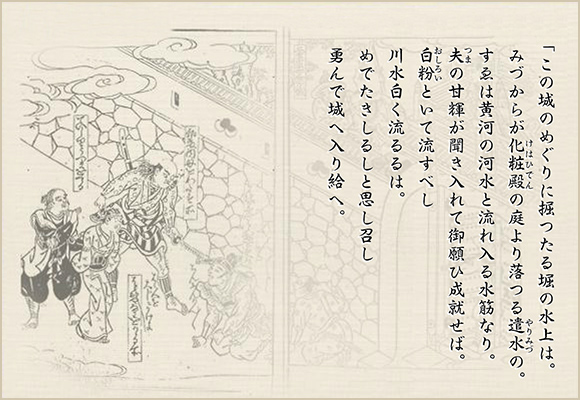 「この城のめぐりに掘つたる堀の水上は。
みづからが化粧殿の庭より落つる遣水の。
すゑは黄河の河水と流れ入る水筋なり。
夫の甘輝が聞き入れて御願ひ成就せば。
白粉といて流すべし
川水白く流るるは。
めでたきしるしと思し召し
勇んで城へ入り給へ。